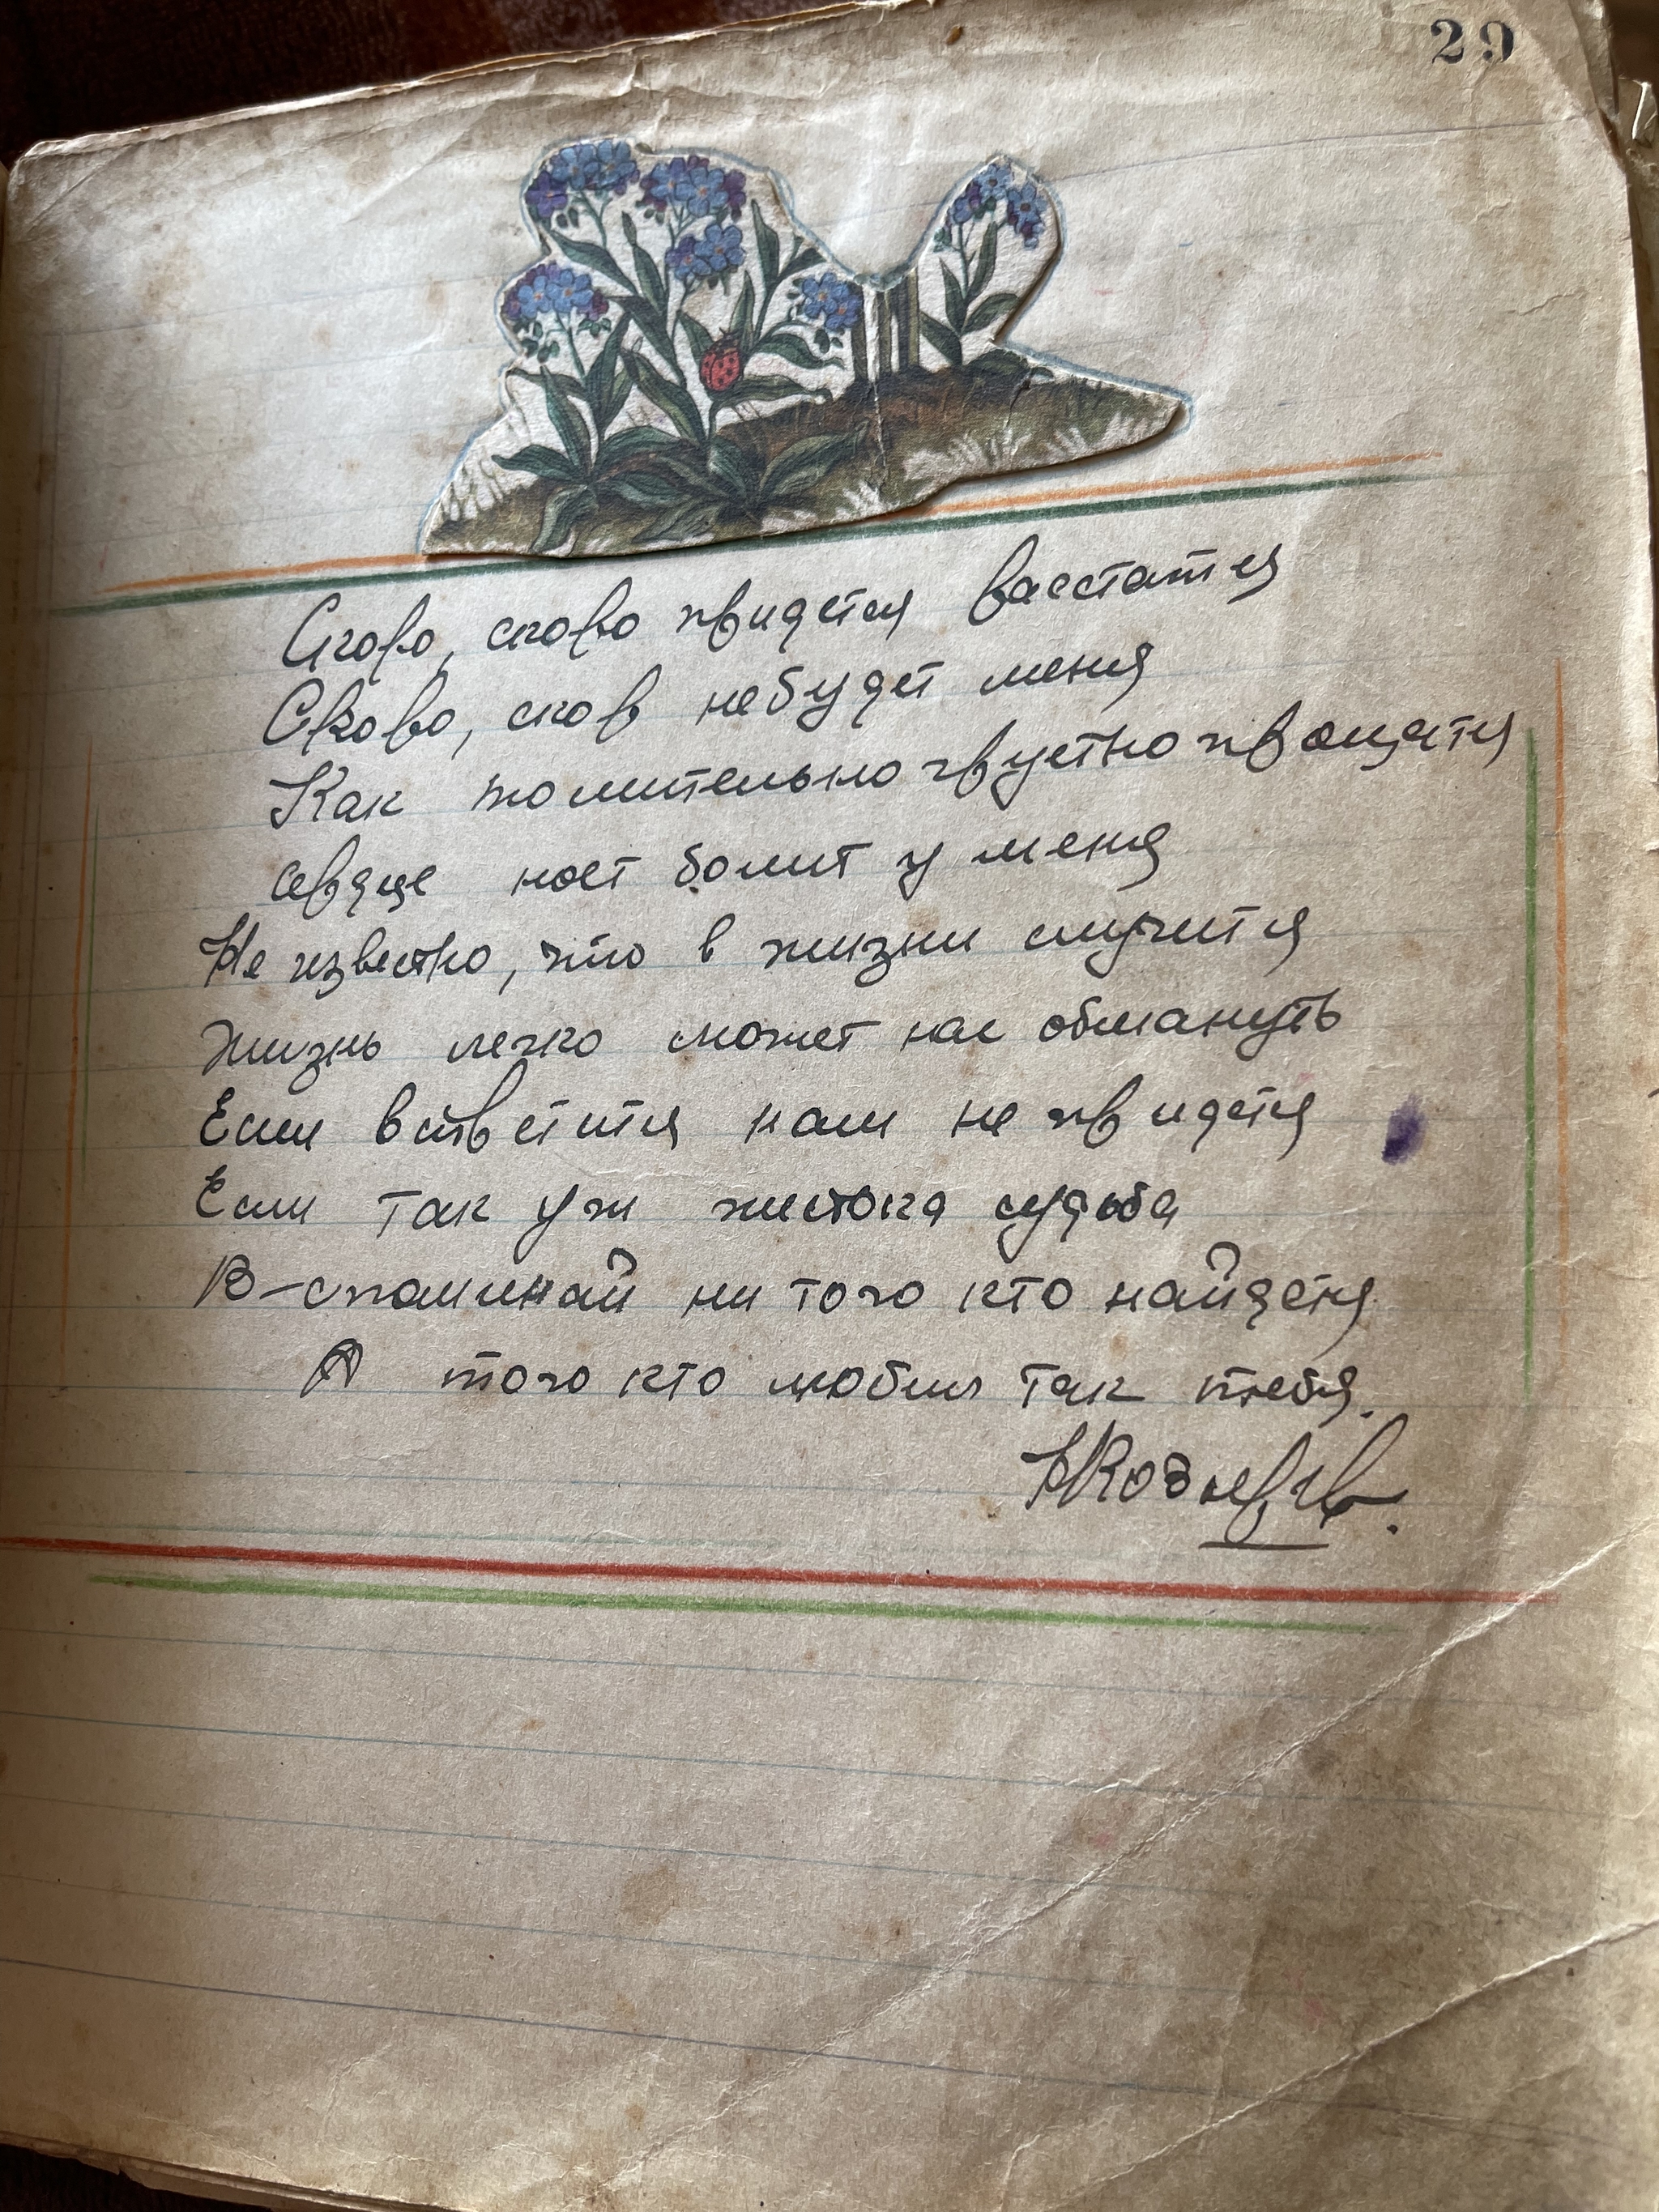 29
Скоро, скоро придется расстатся
Скоро, скор небудет меня
Как томительно грустно прощатся
сердце ноет болит у меня
Не извесно, что в жизни случится
Жизнь легко может нас обмануть
Если встретится нам не придется
Если так уж жистока судьба
В-споминай ни того кто найдется
А того кто любил так тебя.